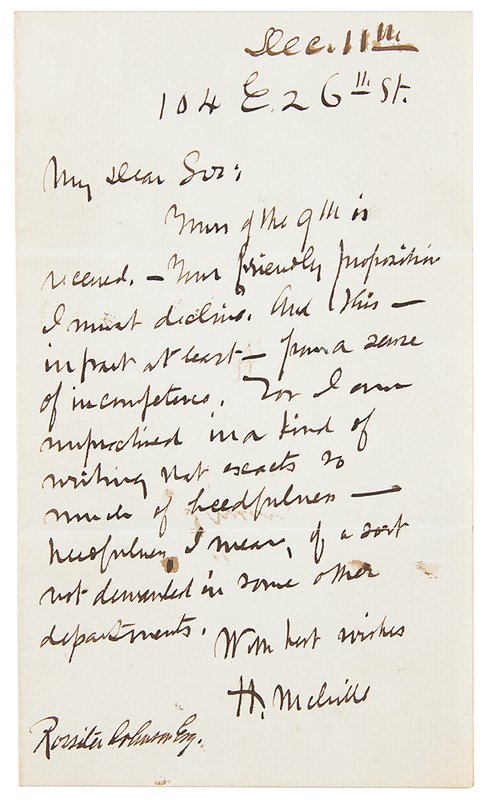 Dec. 11th
104 E. 26th St.
My Dear Sir:
Yours of the 9th is
received. — Your friendly proposition
I must decline. And this —
in part at least — from a sense
of incompetence. For I am
unpracticed in a kind of
writing that exacts so
much of heedfulness —
heedfulness, I mean, of a sort
not demanded in some other
departments.
With best wishes
H. Melville
Rossiter Johnson Esq.